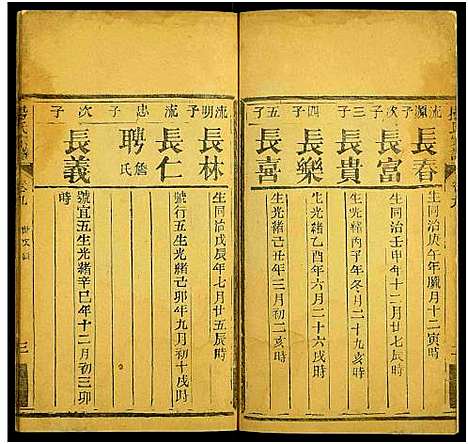 流源子
長春
生同治庚午年臘月十二申時
次子
長富
生同治壬申年十二月十一辰時
三子
長貴
生光緒丙子年冬月二十九亥時
四子
長樂
生光緒乙酉年六月二十六戌時
五子
長喜
生光緒十一年三月初二亥時
流明子
長林
生同治戊辰年七月廿五辰時
流忠子
長仁
號行五生光緒己卯年九月初十戌時
聘詹氏
次子
長義
號宜五生光緒辛巳年十二月初三卯時